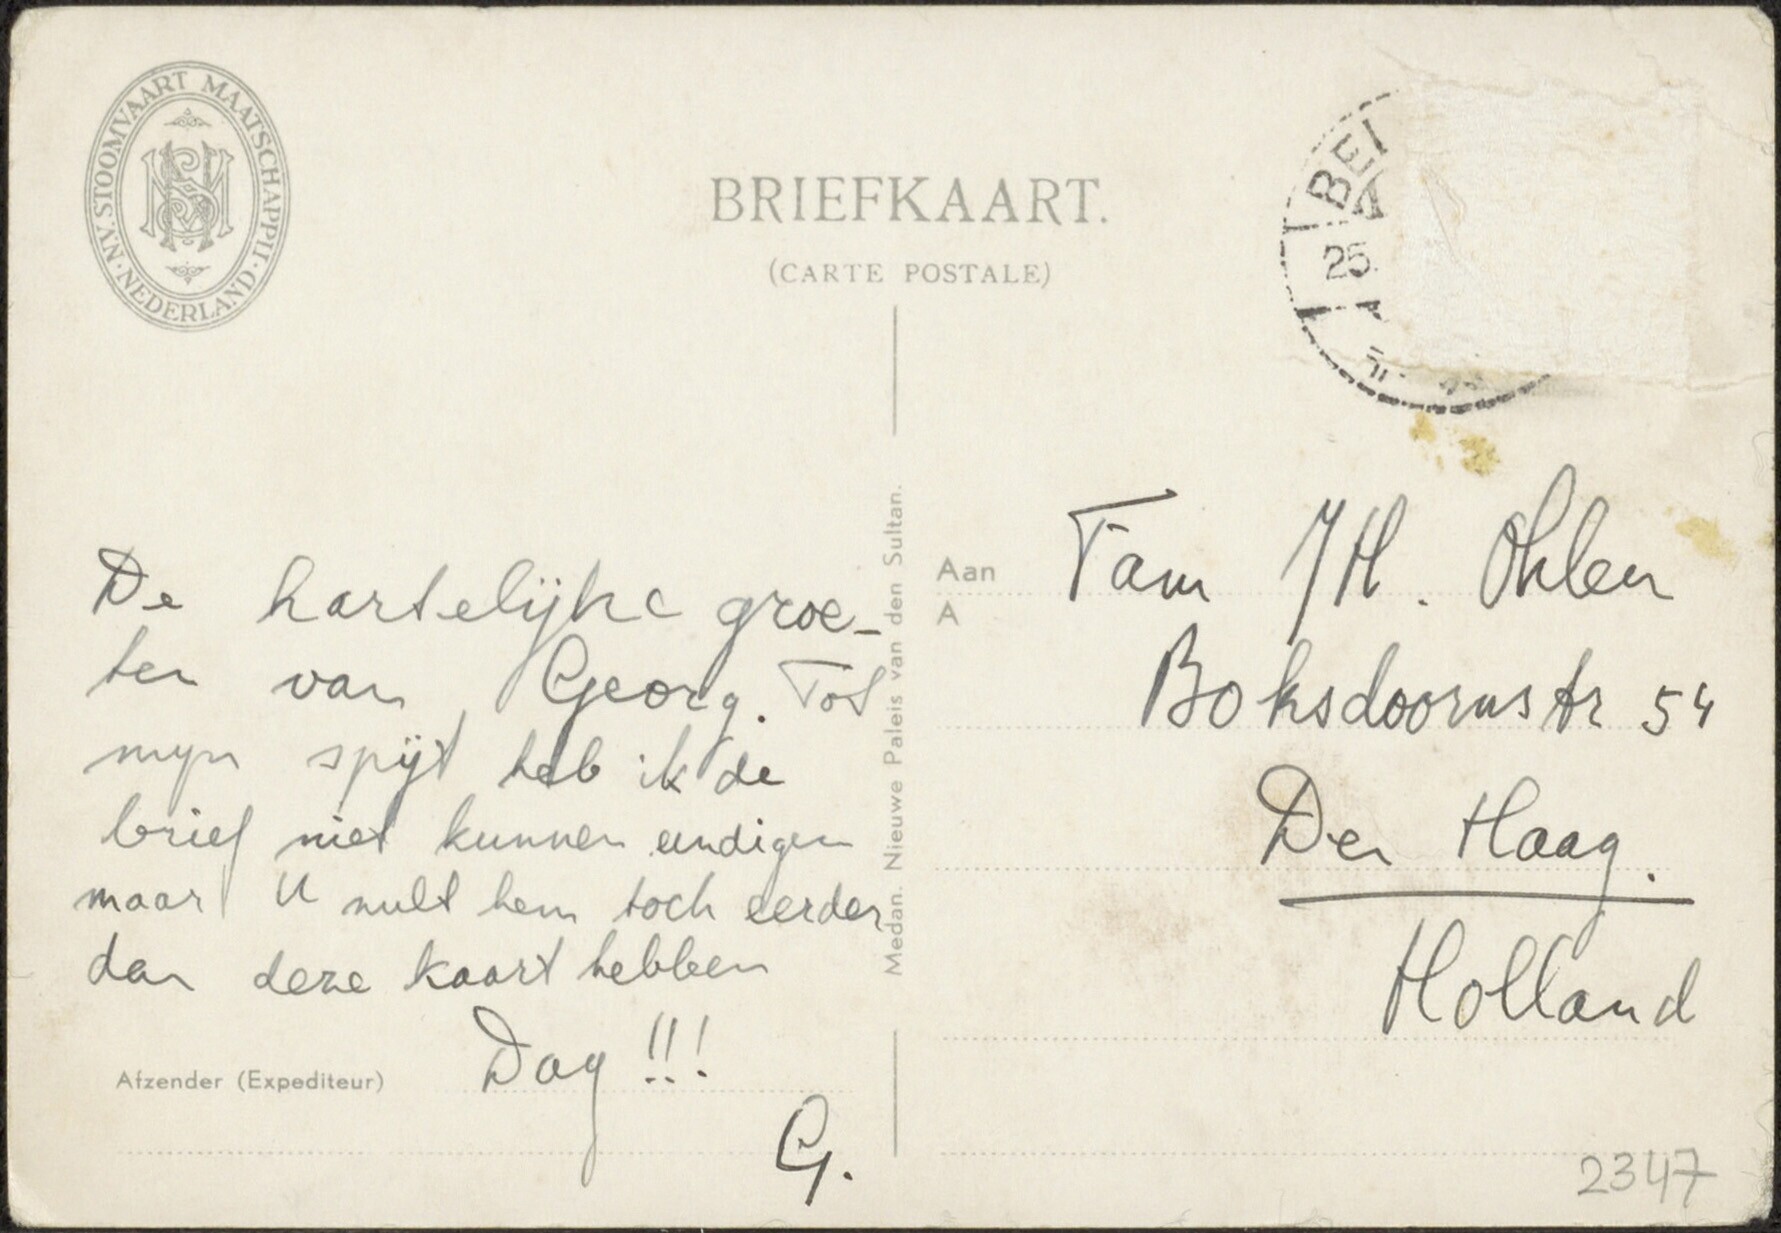 N.V. STOOMVAART MAATSCHAPPIJ · NEDERLAND ·
SMN
BRIEFKAART.
(CARTE POSTALE)
BE
25.
De hartelijke groe-
ten van Georg. Tot
mijn spijt heb ik de
brief niet kunnen eindigen
maar U zult hem toch eerder
dan deze kaart hebben
Dag !!!
G.
Afzender (Expediteur)
Medan. Nieuwe Paleis van den Sultan.
Aan
A
Fam JH. Ohlen
Boksdoornstr 54
Den Haag.
Holland
2347